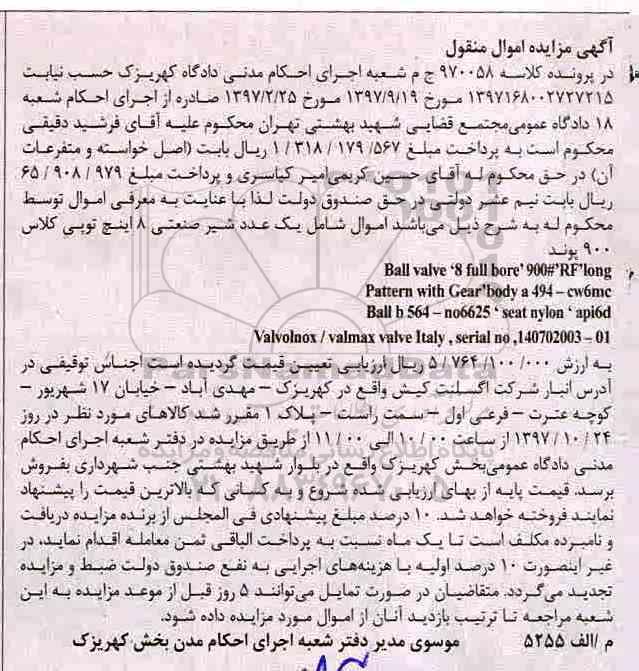 آگهی مزایده اموال منقول
در پرونده کلاسه ۹۷۰۰۵۸ ج م شعبه اجرای احکام مدنی دادگاه کهریزک حسب نیابت
۱۳۹۷۱۶۸۰۰۲۷۲۷۲۱۵ مورخ ۱۳۹۷/۹/۱۹ مورخ ۱۳۹۷/۲/۲۵ صادره از اجرای احکام شعبه
۱۸ دادگاه عمومی‌مجتمع قضایی شهید بهشتی تهران محکوم علیه آقای فرشید دقیقی
محکوم است به پرداخت مبلغ ۵۶۷/ ۱۷۹ / ۳۱۸ / ۱ ریال بابت (اصل خواسته و متفرعات
آن) در حق محکوم له آقای حسین کریمی‌امیر کیاسری و پرداخت مبلغ ۹۷۹ / ۹۰۸ / ۶۵
ریال بابت نیم عشر دولتی در حق صندوق دولت لذا با عنایت به معرفی اموال توسط
محکوم له به شرح ذیل می‌باشد اموال شامل یک عدد شیر صنعتی ۸ اینچ توپی کلاس
۹۰۰ پوند
Ball valve ‘8 full bore’ 900#’RF’long
Pattern with Gear’body a 494 – cw6mc
Ball b 564 – no6625 ‘ seat nylon ‘ api6d
Valvolnox / valmax valve Italy , serial no ,140702003 – 01
به ارزش ۰۰۰/ ۱۰۰/ ۷۶۴/ ۵ ریال ارزیابی تعیین قیمت گردیده است اجناس توقیفی در
آدرس انبار شرکت اگسلنت کیش واقع در کهریزک – مهدی آباد – خیابان ۱۷ شهریور –
کوچه عترت – فرعی اول – سمت راست – پلاک ۱ مقرر شد کالاهای مورد نظر در روز
۲۴ / ۱۰ / ۱۳۹۷ از ساعت ۰۰ / ۱۰ الی ۰۰ / ۱۱ از طریق مزایده در دفتر شعبه اجرای احکام
مدنی دادگاه عمومی‌بخش کهریزک واقع در بلوار شهید بهشتی جنب شهرداری بفروش
برسد. قیمت پایه از بهای ارزیابی شده شروع و به کسانی که بالاترین قیمت را پیشنهاد
نمایند فروخته خواهد شد. ۱۰ درصد مبلغ پیشنهادی فی المجلس از برنده مزایده دریافت
و نامبرده مکلف است تا یک ماه نسبت به پرداخت الباقی ثمن معامله اقدام نماید، در
غیر اینصورت ۱۰ درصد اولیه با هزینه‌های اجرایی به نفع صندوق دولت ضبط و مزایده
تجدید می‌گردد. متقاضیان در صورت تمایل می‌توانند ۵ روز قبل از موعد مزایده به این
شعبه مراجعه تا ترتیب بازدید آنان از اموال مورد مزایده داده شود.
م /الف ۵۲۵۵ موسوی مدیر دفتر شعبه اجرای احکام مدن بخش کهریزک